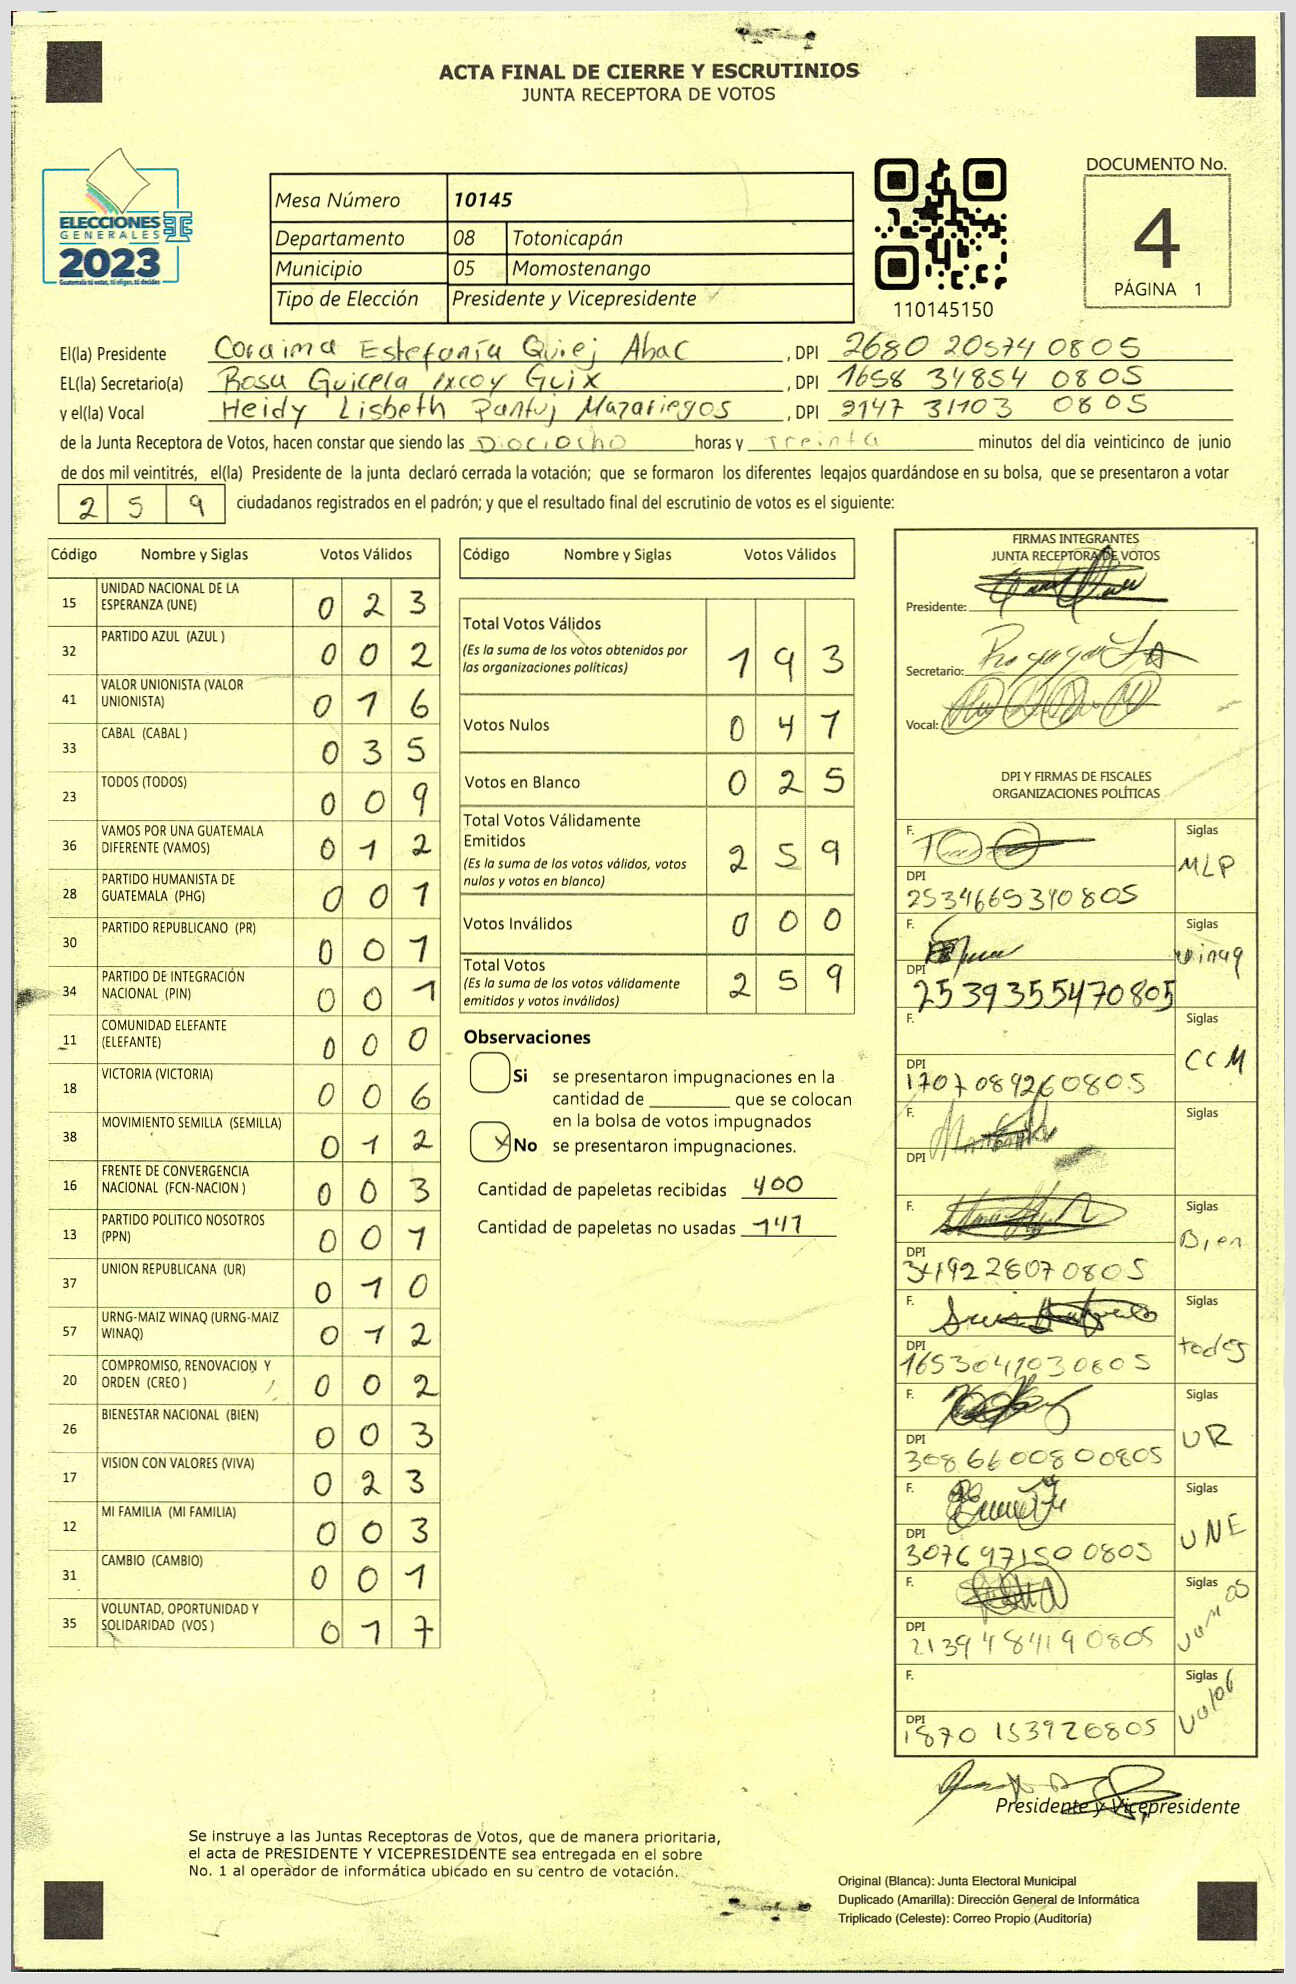 ACTA FINAL DE CIERRE Y ESCRUTINIOS
JUNTA RECEPTORA DE VOTOS
ELECCIONES
GENERALES
2023
Guatemala tú votas, tú eliges, tú decides
Mesa Número 10145
Departamento 08 Totonicapán
Municipio 05 Momostenango
Tipo de Elección Presidente y Vicepresidente
110145150
DOCUMENTO No.
4
PÁGINA 1
El(la) Presidente Coraima Estefanía Quiej Abac , DPI 2680 20574 0805
EL(la) Secretario(a) Rosa Guicela Ixcoy Guix , DPI 1658 34854 0805
y el(la) Vocal Heidy Lisbeth Pantuj Mazariegos , DPI 2147 31103 0805
de la Junta Receptora de Votos, hacen constar que siendo las Dociocho horas y Treinta minutos del día veinticinco de junio
de dos mil veintitrés, el(la) Presidente de la junta declaró cerrada la votación; que se formaron los diferentes legajos quardándose en su bolsa, que se presentaron a votar
2 5 9 ciudadanos registrados en el padrón; y que el resultado final del escrutinio de votos es el siguiente:
Código Nombre y Siglas Votos Válidos
15 UNIDAD NACIONAL DE LA ESPERANZA (UNE) 0 2 3
32 PARTIDO AZUL (AZUL ) 0 0 2
41 VALOR UNIONISTA (VALOR UNIONISTA) 0 1 6
33 CABAL (CABAL ) 0 3 5
23 TODOS (TODOS) 0 0 9
36 VAMOS POR UNA GUATEMALA DIFERENTE (VAMOS) 0 1 2
28 PARTIDO HUMANISTA DE GUATEMALA (PHG) 0 0 1
30 PARTIDO REPUBLICANO (PR) 0 0 1
34 PARTIDO DE INTEGRACIÓN NACIONAL (PIN) 0 0 1
11 COMUNIDAD ELEFANTE (ELEFANTE) 0 0 0
18 VICTORIA (VICTORIA) 0 0 6
38 MOVIMIENTO SEMILLA (SEMILLA) 0 1 2
16 FRENTE DE CONVERGENCIA NACIONAL (FCN-NACION ) 0 0 3
13 PARTIDO POLITICO NOSOTROS (PPN) 0 0 1
37 UNION REPUBLICANA (UR) 0 1 0
57 URNG-MAIZ WINAQ (URNG-MAIZ WINAQ) 0 1 2
20 COMPROMISO, RENOVACION Y ORDEN (CREO ) 0 0 2
26 BIENESTAR NACIONAL (BIEN) 0 0 3
17 VISION CON VALORES (VIVA) 0 2 3
12 MI FAMILIA (MI FAMILIA) 0 0 3
31 CAMBIO (CAMBIO) 0 0 1
35 VOLUNTAD, OPORTUNIDAD Y SOLIDARIDAD (VOS ) 0 1 7
Código Nombre y Siglas Votos Válidos
Total Votos Válidos
(Es la suma de los votos obtenidos por
las organizaciones politicas) 1 9 3
Votos Nulos 0 4 1
Votos en Blanco 0 2 5
Total Votos Válidamente
Emitidos
(Es la suma de los votos válidos, votos
nulos y votos en blanco) 2 5 9
Votos Inválidos 0 0 0
Total Votos
(Es la suma de los votos válidamente
emitidos y votos inválidos) 2 5 9
Observaciones
Si se presentaron impugnaciones en la
cantidad de ________ que se colocan
en la bolsa de votos impugnados
X No se presentaron impugnaciones.
Cantidad de papeletas recibidas 400
Cantidad de papeletas no usadas 141
FIRMAS INTEGRANTES
JUNTA RECEPTORA DE VOTOS
Presidente:
Secretario:
Vocal:
DPI Y FIRMAS DE FISCALES
ORGANIZACIONES POLÍTICAS
F. Siglas MLP
DPI 2534665340805
F. Siglas winaq
DPI 2539355470805
F. Siglas CCM
DPI 1707089260805
F. Siglas
DPI
F. Siglas Bien
DPI 3419228070805
F. Siglas todos
DPI 1653041030805
F. Siglas UR
DPI 3086600800805
F. Siglas UNE
DPI 3076971500805
F. Siglas vamos
DPI 2139484190805
F. Siglas
DPI 1870153920805
Presidente y Vicepresidente
Se instruye a las Juntas Receptoras de Votos, que de manera prioritaria,
el acta de PRESIDENTE Y VICEPRESIDENTE sea entregada en el sobre
No. 1 al operador de informática ubicado en su centro de votación.
Original (Blanca): Junta Electoral Municipal
Duplicado (Amarilla): Dirección General de Informática
Triplicado (Celeste): Correo Propio (Auditoría)